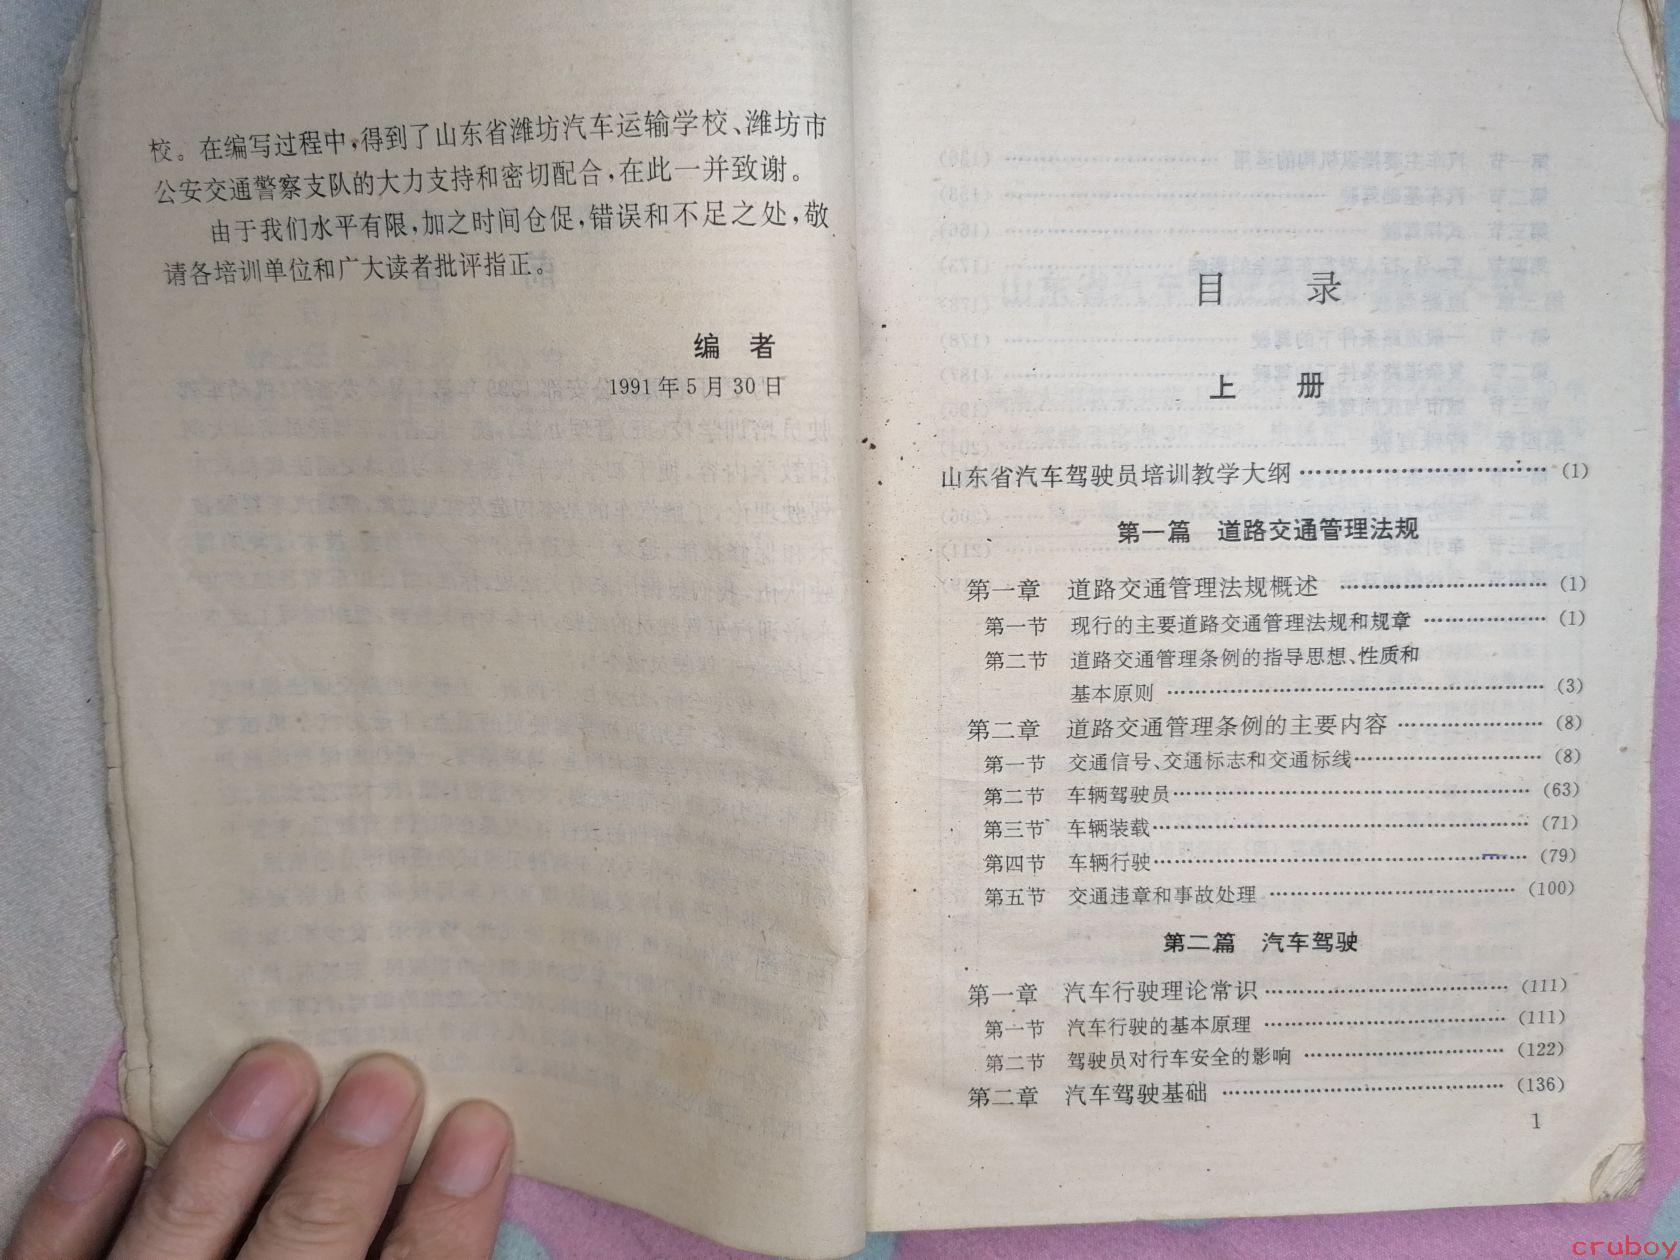 校。在编写过程中,得到了山东省潍坊汽车运输学校、潍坊市
公安交通警察支队的大力支持和密切配合,在此一并致谢。
由于我们水平有限,加之时间仓促,错误和不足之处,敬
请各培训单位和广大读者批评指正。
编 者
1991年5月30日
目 录
上 册
山东省汽车驾驶员培训教学大纲……………………………(1)
第一篇 道路交通管理法规
第一章 道路交通管理法规概述 ……………………………(1)
第一节 现行的主要道路交通管理法规和规章 ………………(1)
第二节 道路交通管理条例的指导思想、性质和
基本原则 ……………………………………………………(3)
第二章 道路交通管理条例的主要内容 ……………………(8)
第一节 交通信号、交通标志和交通标线……………………(8)
第二节 车辆驾驶员………………………………………………(63)
第三节 车辆装载…………………………………………………(71)
第四节 车辆行驶…………………………………………………(79)
第五节 交通违章和事故处理 …………………………………(100)
第二篇 汽车驾驶
第一章 汽车行驶理论常识…………………………………(111)
第一节 汽车行驶的基本原理 …………………………………(111)
第二节 驾驶员对行车安全的影响 ……………………………(122)
第二章 汽车驾驶基础 ………………………………………(136)
1
cruboy